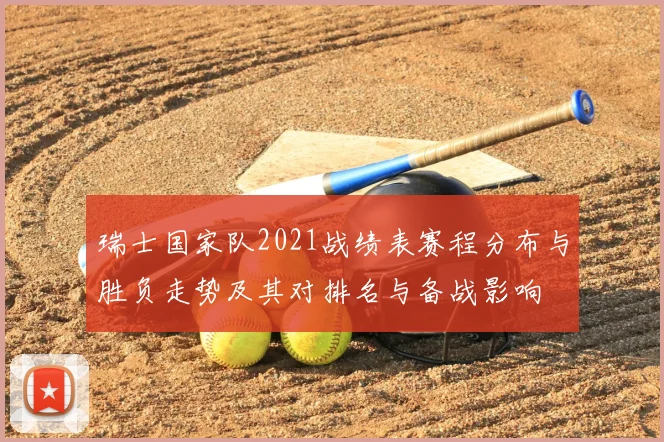 瑞士国家队2021战绩表赛程分布与
胜负走势及其对排名与备战影响